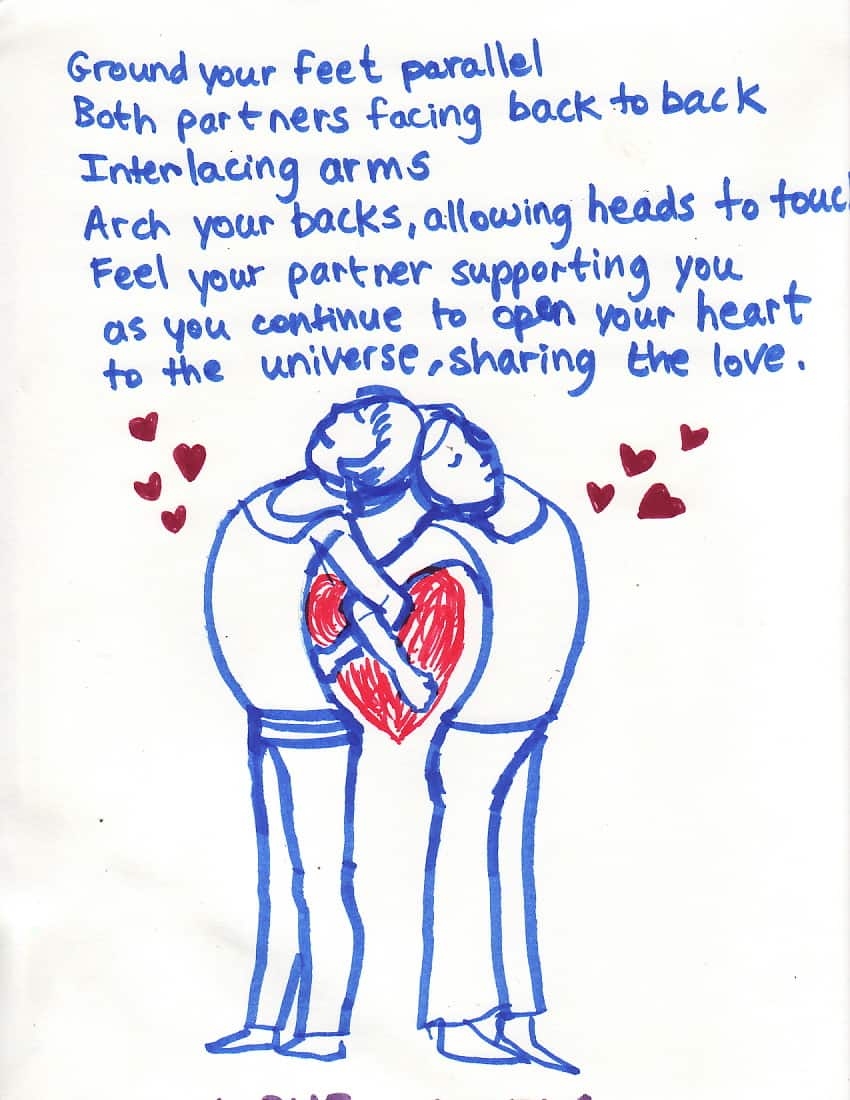 Ground your feet parallel
Both partners facing back to back
Interlacing arms
Arch your backs, allowing heads to touc
Feel your partner supporting you
as you continue to open your heart
to the universe, sharing the love.